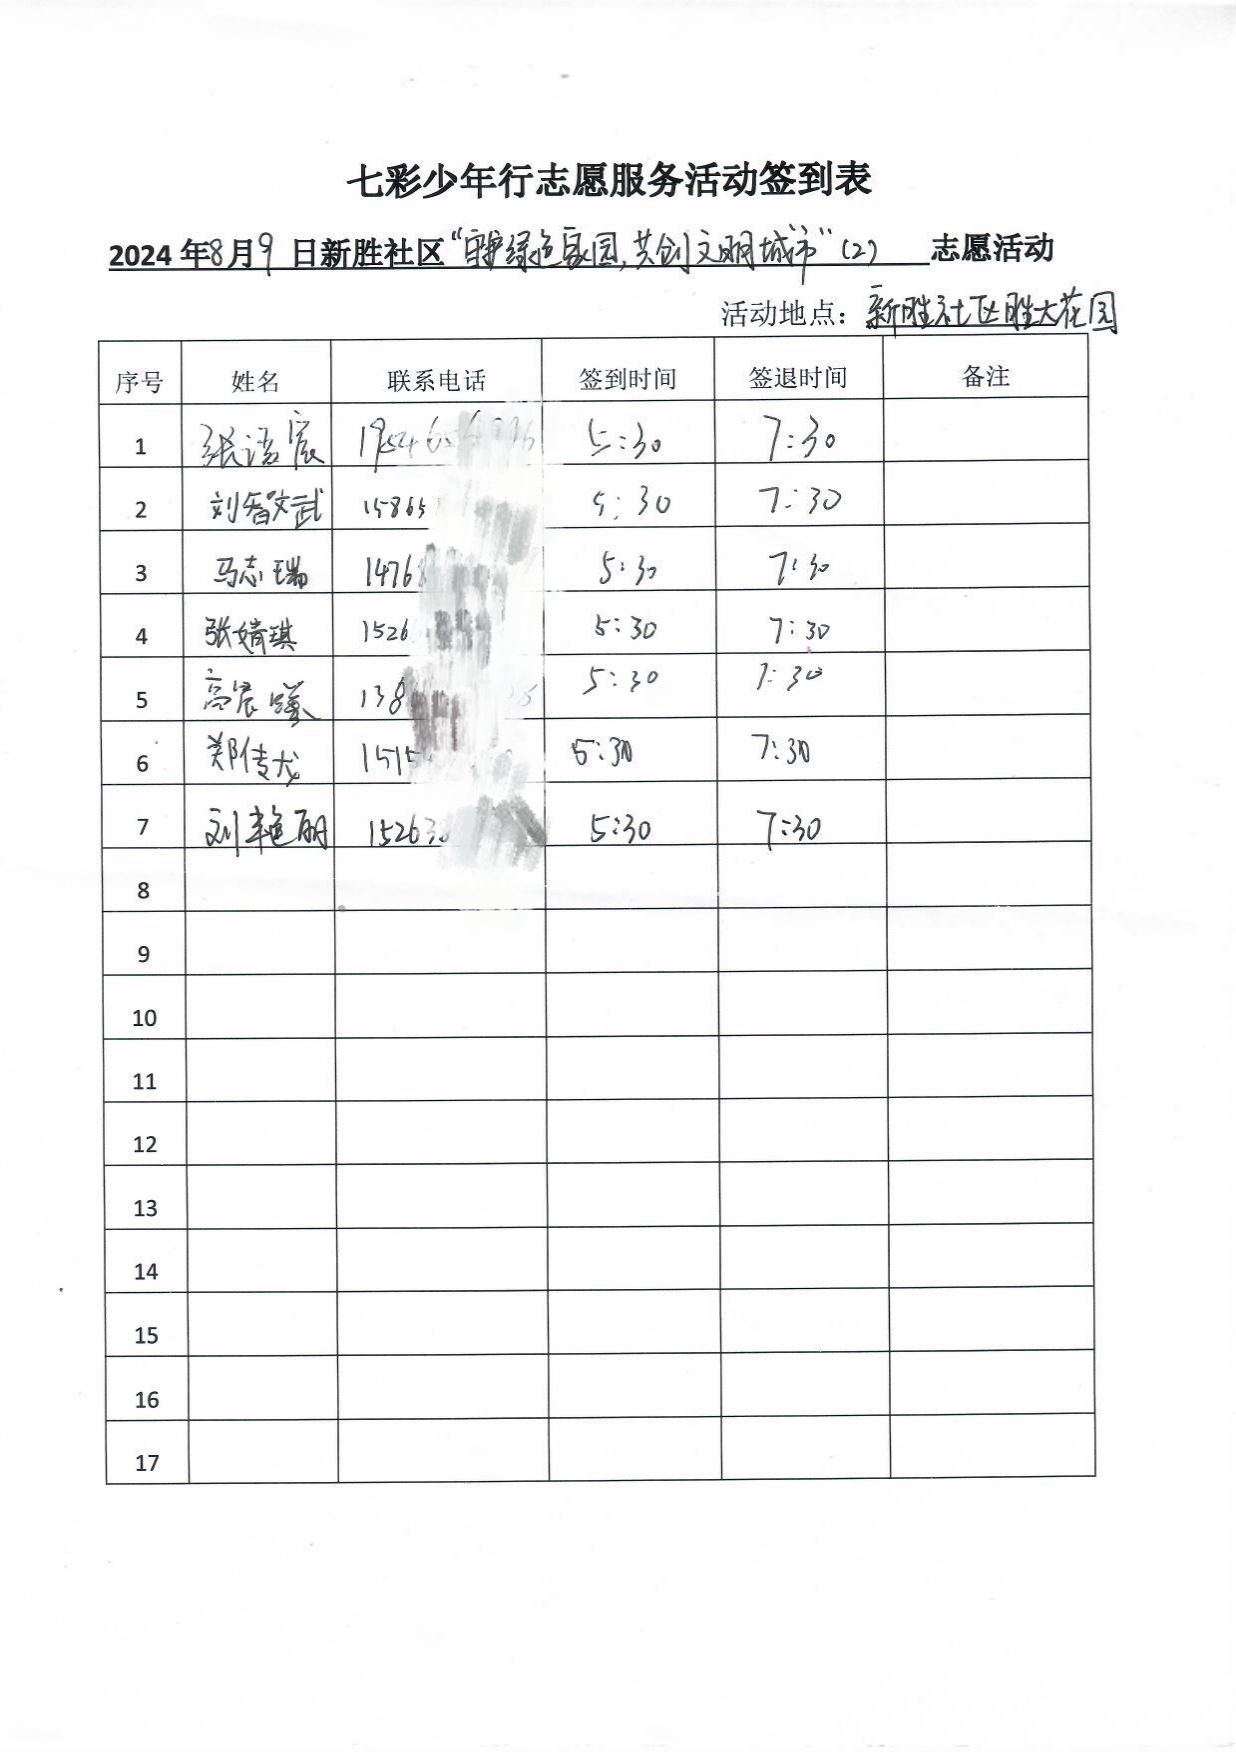 七彩少年行志愿服务活动签到表
2024 年8月9 日新胜社区“守护绿色家园,共创文明城市”(2) 志愿活动
活动地点：新胜社区胜大花园
序号 姓名 联系电话 签到时间 签退时间 备注
1 张 宸 5:30 7:30
2 刘智文武 15865 5:30 7:30
3 马志瑞 1476 5:30 7:30
4 张婧琪 1526 5:30 7:30
5 高宸 138 5:30 7:30
6 郑传龙 1515 5:30 7:30
7 刘艳丽 15263 5:30 7:30
8
9
10
11
12
13
14
15
16
17